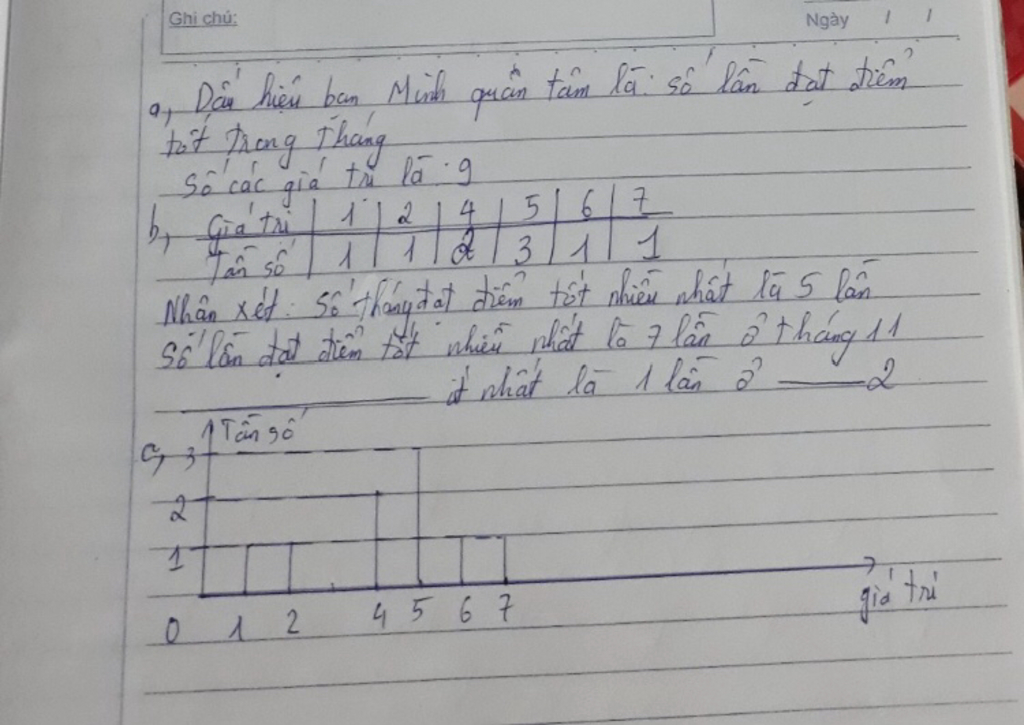 Ghi chú:
Ngày / /
a, Dấu hiệu bạn Minh quan tâm là: số lần đạt điểm
tốt trong tháng
Số các giá trị là : 9
b, Giá trị 1 2 4 5 6 7
Tần số 1 1 2 3 1 1
Nhận xét: Số tháng đạt điểm tốt nhiều nhất là 5 lần
Số lần đạt điểm tốt nhiều nhất là 7 lần ở tháng 11
ít nhất là 1 lần ở 2
c, Tần số
3
2
1
0 1 2 4 5 6 7
giá trị